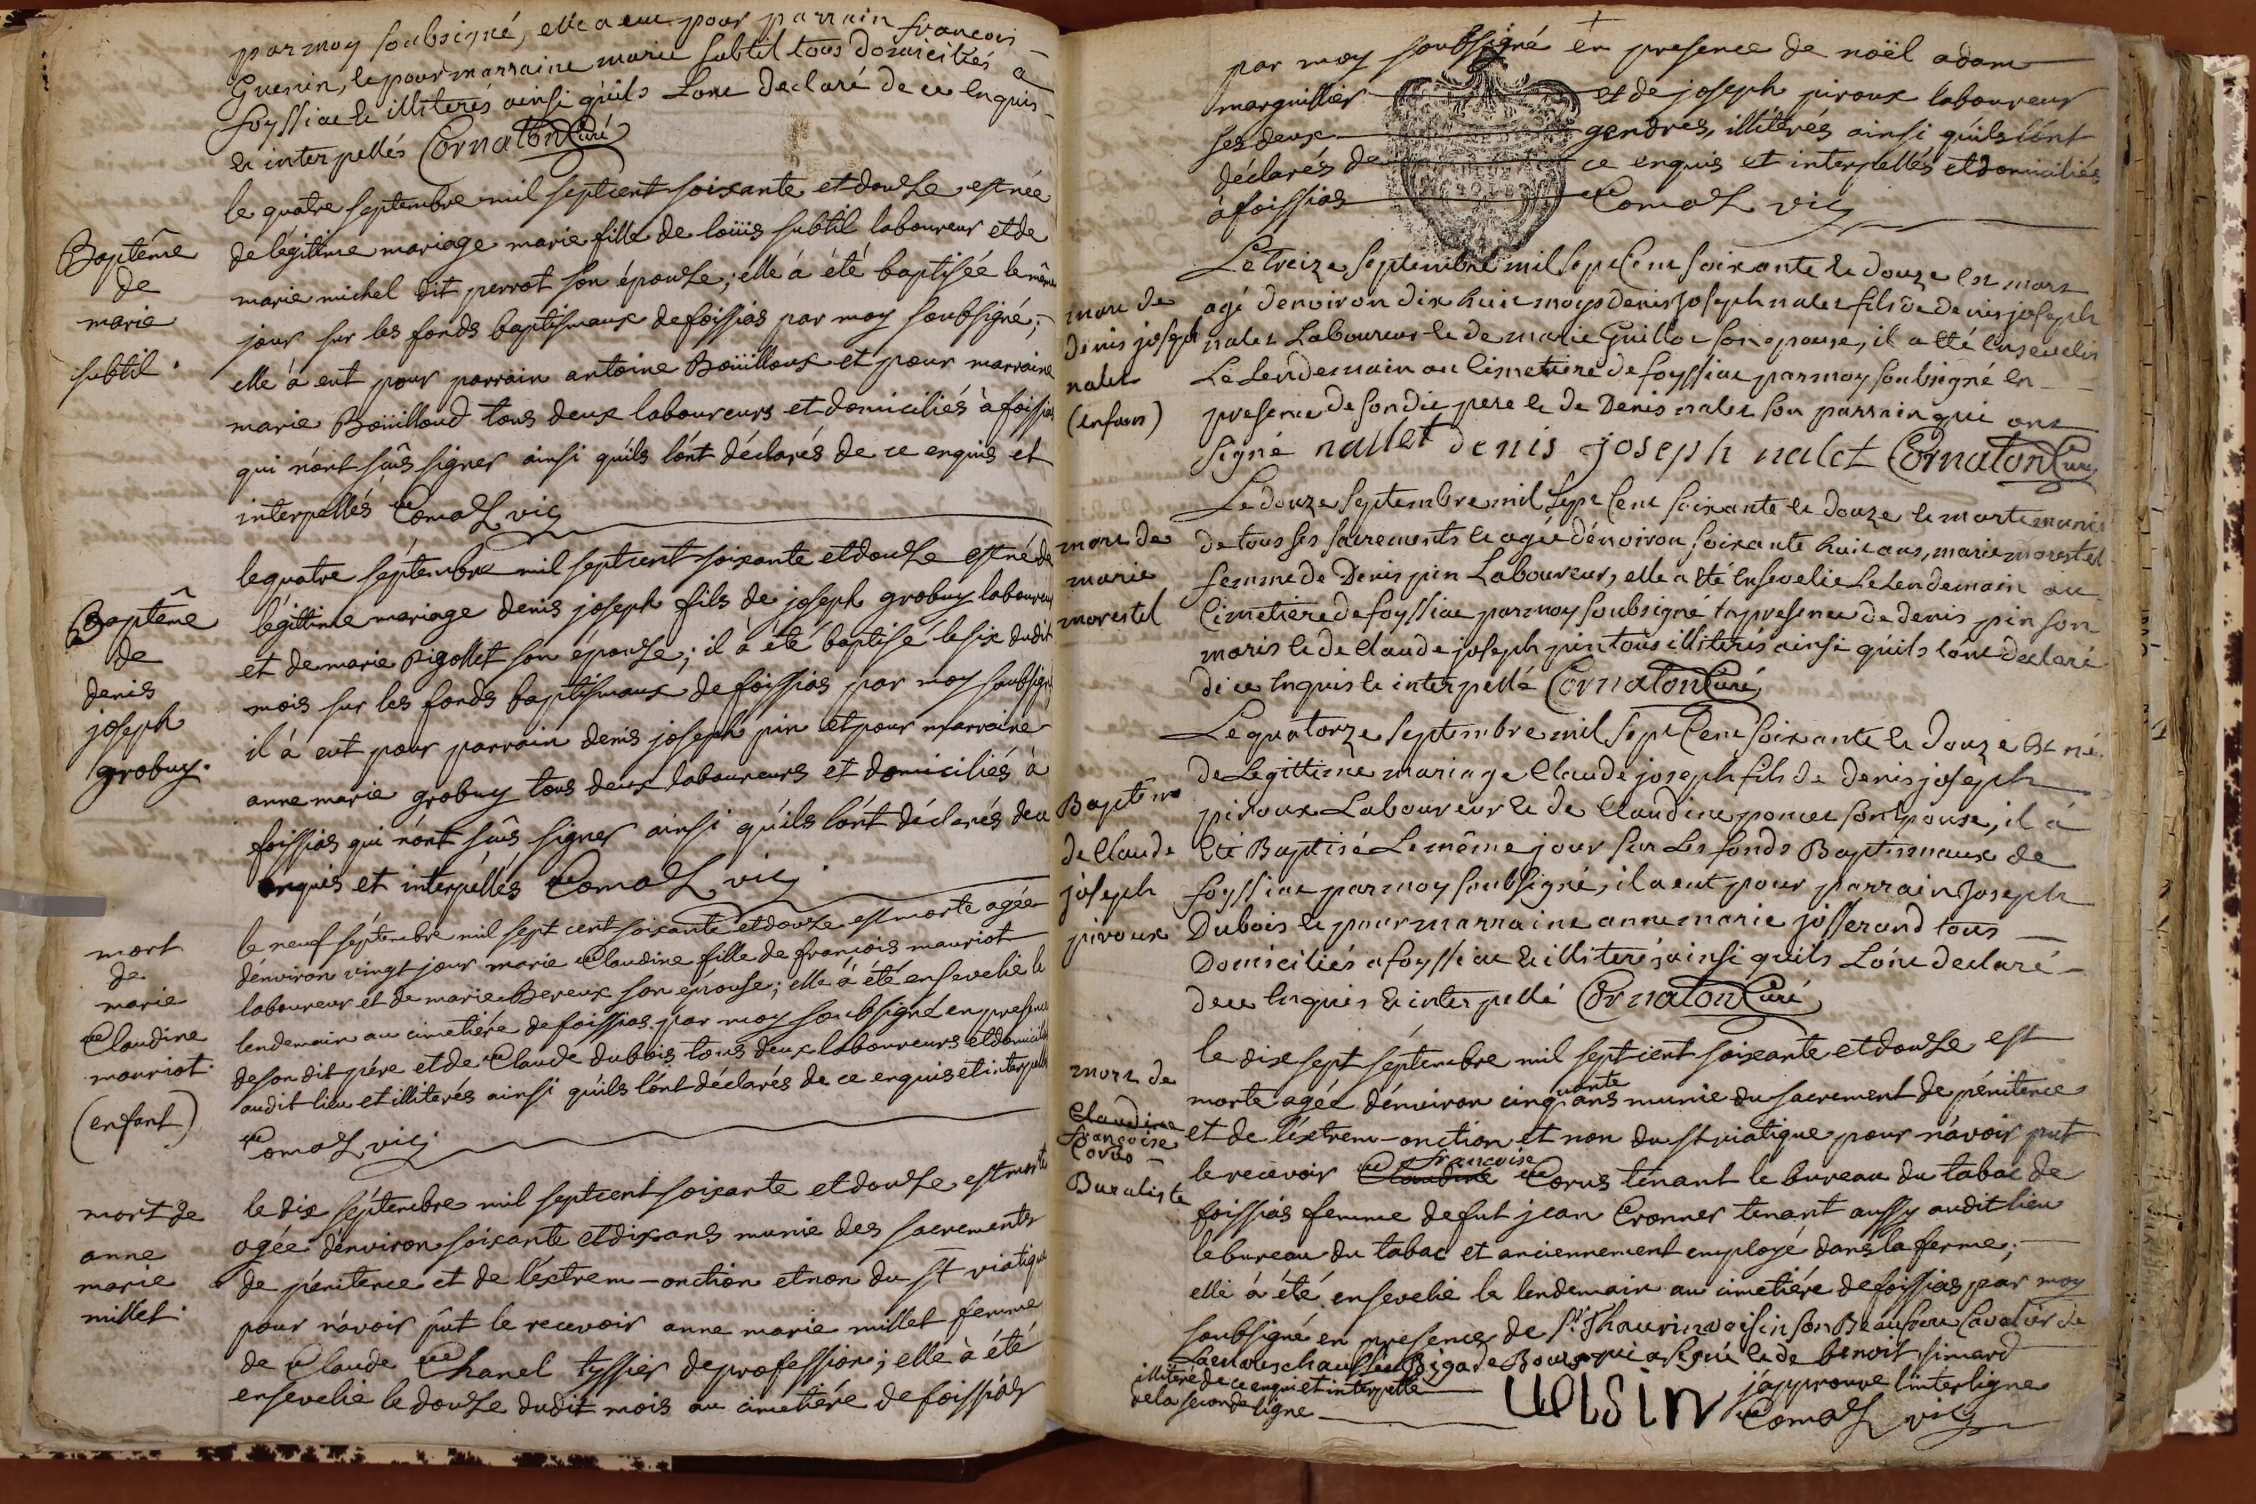 par moy soubsigné, elle a eut pour parrain francois
Guenin, & pour marraine marie subtil tous domiciliés a
foyssiat & illiterés ainsi qu'ils Lont declaré de ce Enquis
& interpellés Cornaton Curé
le quatre septembre mil septcent soixante et douse est née
de légitime mariage marie fille de loüis subtil laboureur et de
marie michel dit perrot son épouse; elle à été baptisée le même
jour sur les fonds baptismaux de foissias par moy soubsigné;
elle à eut pour parrain antoine Boüilloux et pour marraine
marie Boüilloud tous deux laboureurs et domiciliés à foissias
qui n'ont sûs signer ainsi qu'ils l'ont déclarés de ce enquis et
interpellés Comas vic
Baptême
de
marie
subtil.
le quatre séptembre mil septcent soixante et douse est né de
légittime mariage denis joseph fils de joseph grobuy laboureur
et de marie Rigollet son épouse; il à été baptisé le six dudit
mois sur les fonds baptismaux de foissias par moy soubsigné
il à eut pour parrain denis joseph pin et pour marraine
anne marie grobuy tous deux laboureurs et domiciliés à
foissias qui n'ont sûs signer ainsi qu'ils l'ont déclarés de ce
enquis et interpéllés Comas vic
Baptême
de
denis
joseph
grobuy.
le neuf séptembre mil sept cent soixante et douse est morte agée
d'énviron vingt jour marie Claudine fille de françois mauriot
laboureur et de marie Bereux son épouse; elle à été ensevelie le
lendemain au cimetiére de foissias par moy soubsigné en presence
de son dit pére et de Claude dubois tous deux laboureurs et domiciliés
audit lieu et illiterés ainsi qu'ils l'ont déclarés de ce enquis et interpellés
Comas vic
mort
de
marie
Claudine
mauriot.
(enfant)
le dix séptembre mil septcent soixante et douse est morte
agée d'environ soixante et dix ans munie des sacrements
de pénitence et de l'extrem-onction et non du st viatique
pour n'avoir pût le recevoir anne marie millet femme
de Claude Chanel tyssier de profession; elle à été
ensevelie le douse dudit mois au cimetiére de foissias
mort de
anne
marie
millet.
par moy soubsigné en presence de noël adam
marguillier et de joseph piroux laboureur
ses deux gendres, illitérés ainsi qu'ils l'ont
déclarés de ce enquis et interpellés et domiciliés
à foissias Comas vic
Le treize septembre mil sept Cent soixante & douze est mort
agé denviron dix huit moys denis joseph nalet fils de denis joseph
nalet Laboureur & de marie Guillot son epouse, il a eté Ensevelis
Le Lendemain au Cimetiere de foyssiat par moy soubsigné en
presence de son dit pere & de Denis nalet son parrain qui ont
signé nallet denis joseph nalet Cornaton Curé
mort de
denis joseph
nalet
(enfant)
Le douze septembre mil sept Cent soixante & douze & morte munie
de tous ses sacrements & agée d'énviron soixante huit ans, marie morestel
femme de Denis pin Laboureur, elle a eté Ensevelie Le Lendemain au
Cimetiere de foyssiat par moy soubsigné En presence de denis pin son
maris & de Claude joseph pin tous illiterés ainsi qu'ils lont declaré
de ce Enquis & interpellé Cornaton Curé
mort de
marie
morestel
Le quatorze septembre mil sept Cent soixante & douze Est né
de Legittime mariage Claude joseph fils de denis joseph
piroux Laboureur & de Claudine poncet son Epouse, il á
Eté Baptisé Le même jour sur Les fonds Baptismaux de
foyssiat par moy soubsigné, il a eut pour parrain Joseph
Dubois & pour marraine anne marie josserand tous
Domiciliés a foyssiat & illiterés ainsi qu'ils L'ont declaré
de ce Enquis & interpellé Cornaton Curé
Baptême
de Claude
joseph
piroux
le dix sept séptembre mil septcent soixante et douse est
morte agée d'énviron cinquante ans munie du sacrement de pénitence
et de l'éxtrem-onction et non du st viatique pour n'avoir put
le recevoir Claudine françoise Corus tenant le bureau du tabac de
foissias femme de fut jean Cronner tenant aussy audit lieu
le bureau du tabac et anciennement employé dans la ferme;
elle à été ensevelie le lendemain au cimetiére de foissias par moy
soubsigné en presence de Sr. Thaurin voisin son Beaufrere Cavalier de
La marechaussée de Bourg qui a signé & de benoit simard
illitéré de ce enquis et interpellé japprouve linterligne
de la seconde ligne voisin Comas vic
mort de
Claudine
françoise
Corus
Buraliste